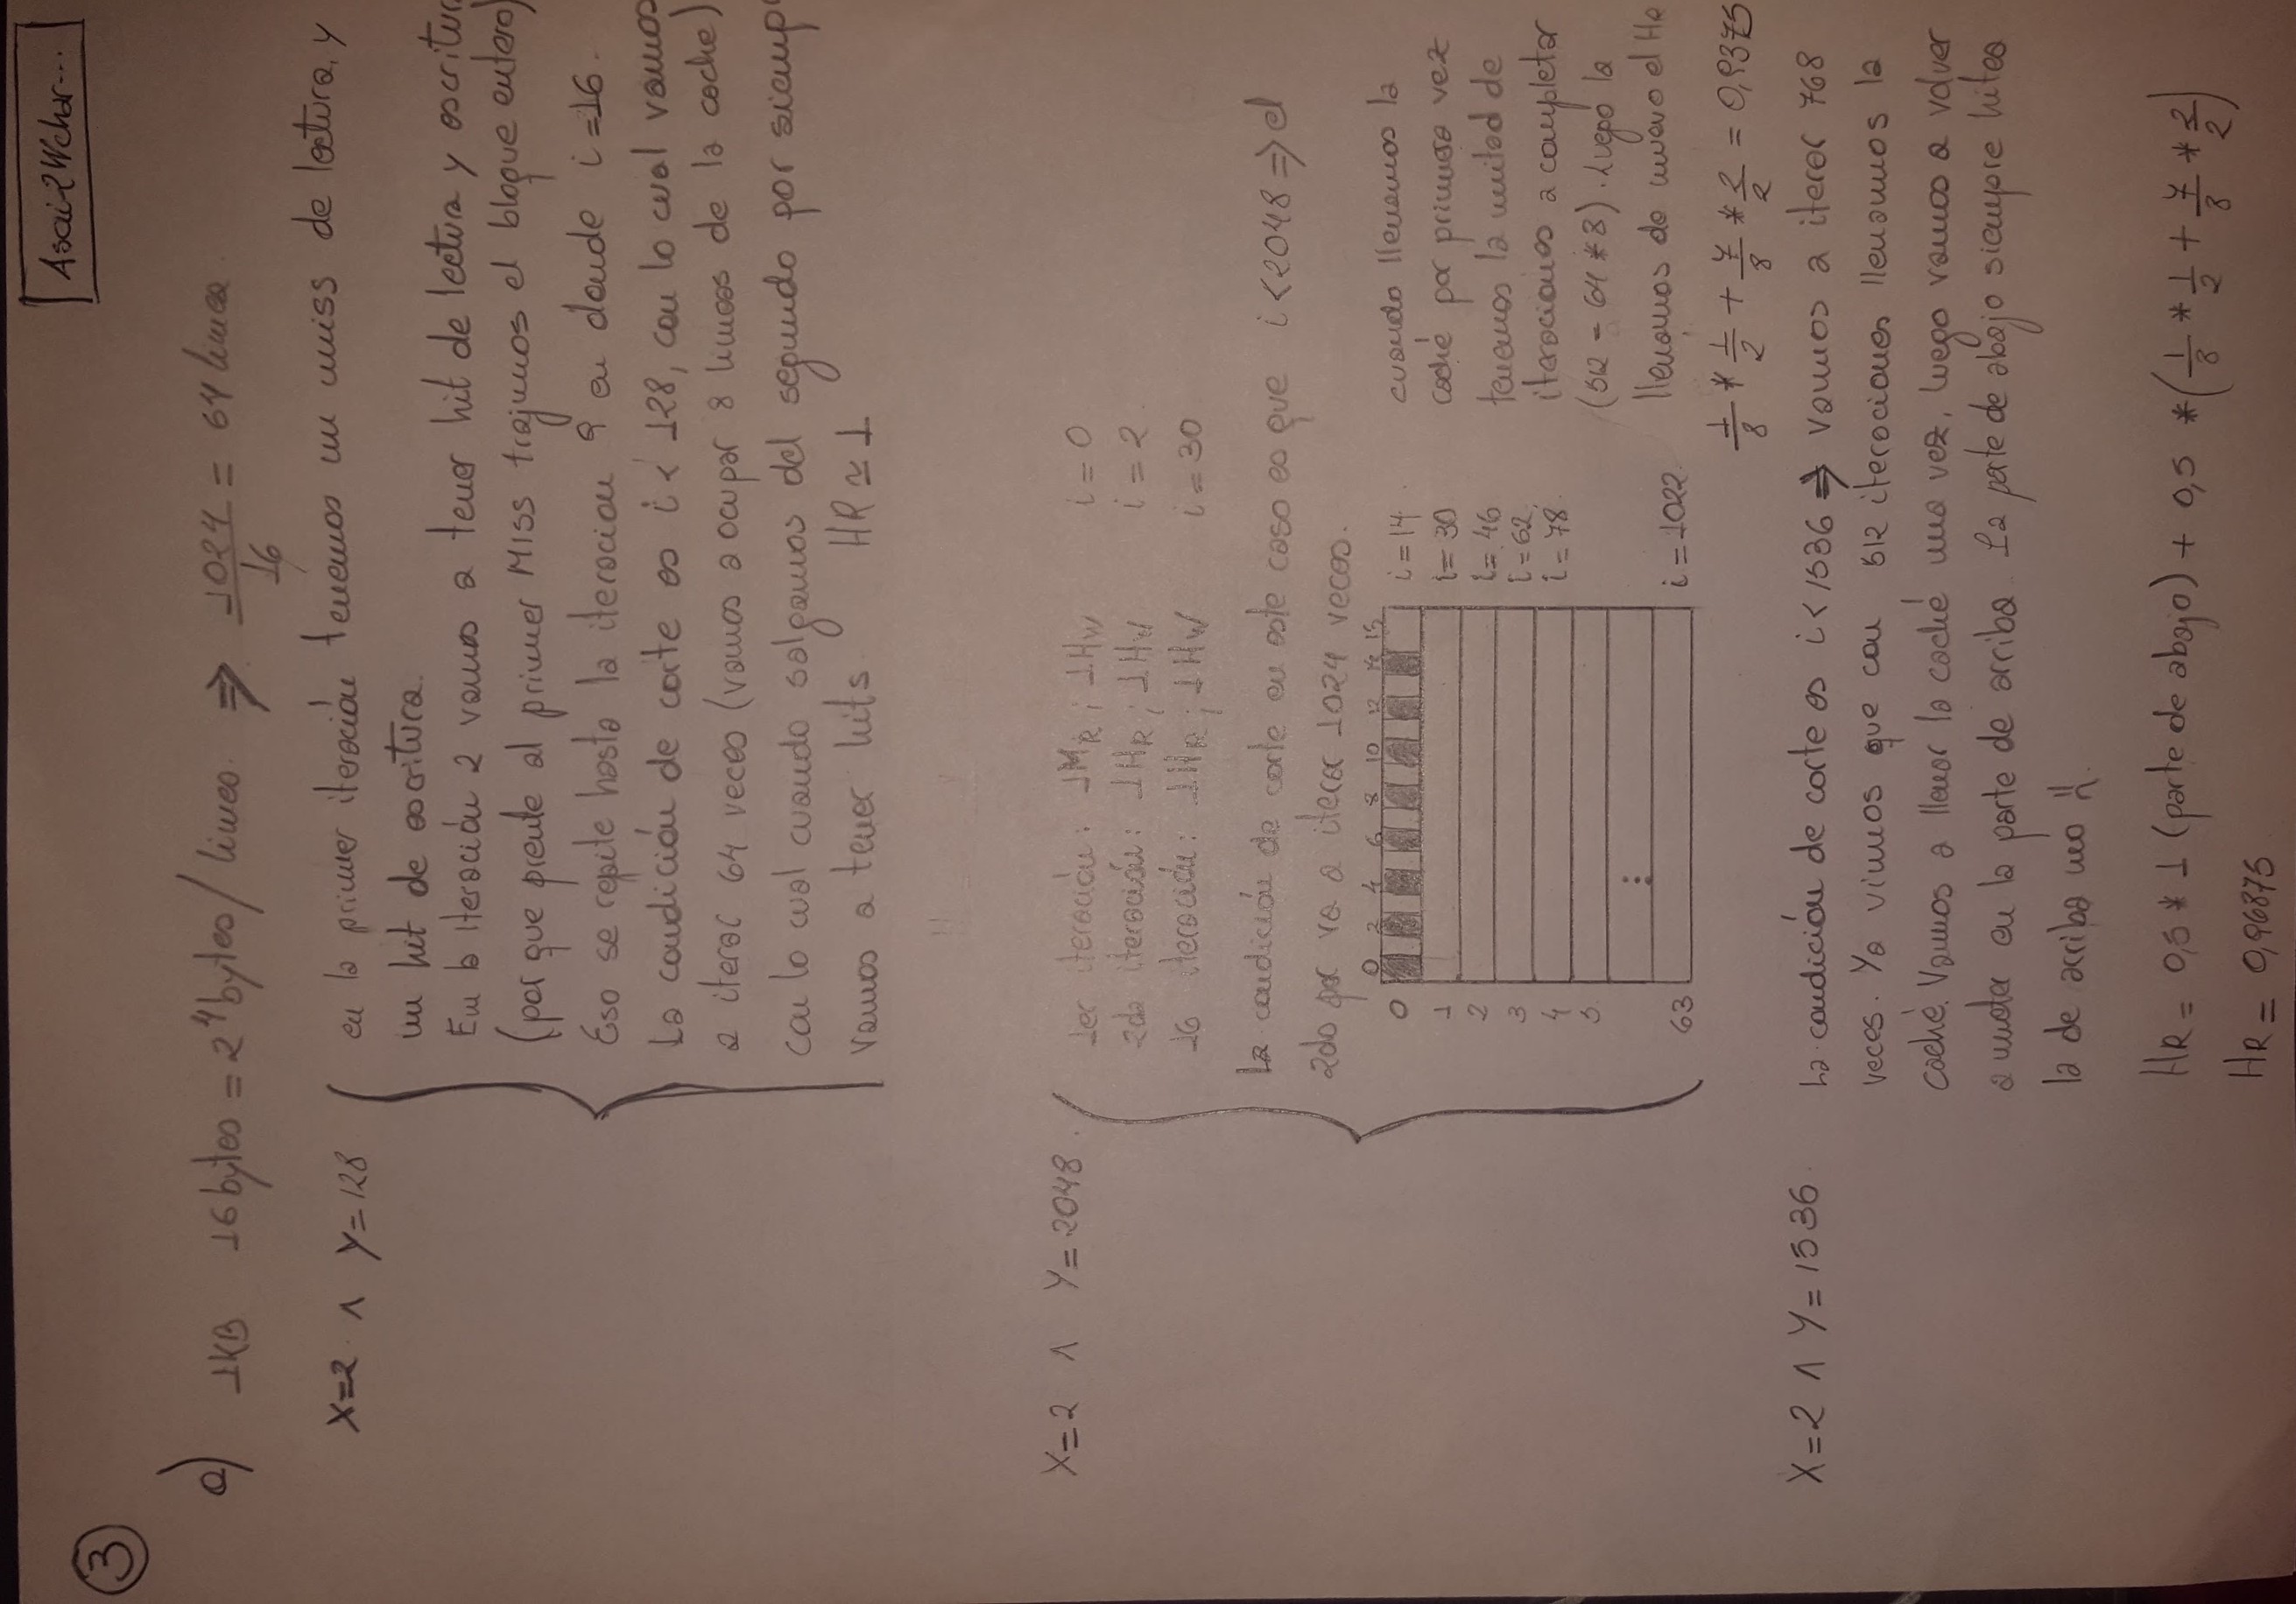 Asai2Wchar...
3
a) 1KB 16 bytes = 2^4 bytes / linea ⇒ 1024/16 = 64 linea
X=2 ∧ Y=128
en la primer iteración tenemos un miss de lectura, y
un hit de escritura.
En la Iteración 2 vamos a tener hit de lectura y escritur
(por que frente al primer MISS trajimos el bloque entero)
Eso se repite hasta la iteracion 9 en donde i=16.
La condición de corte es i < 128, con lo cual vamos
a iterar 64 veces (vamos a ocupar 8 lineas de la cache)
con lo cual cuando salgamos del segundo for siemp
vamos a tener hits HR ≃ 1
X=2 ∧ Y=2048.
1er iteración: 1MR ; 1HW i = 0
2da iteración: 1HR ; 1HW i = 2
16 iteración: 1HR ; 1HW i = 30
La condición de corte en este caso es que i<2048 ⇒ el
2do for va a iterar 1024 veces.
0 2 4 6 8 10 12 14 15
0 i = 14
1 i= 30
2 i= 46
3 i= 62
4 i= 78
5
⋮
63 i = 1022
cuando llenamos la
caché por primera vez
tenemos la mitad de
iteraciones a completar
(512 = 64 * 8). Luego la
llenamos de nuevo el HR
1/8 * 1/2 + 7/8 * 2/2 = 0,9375
X=2 ∧ Y= 1536
La condición de corte es i<1536 ⇒ vamos a iterar 768
veces. Ya vimos que con 512 iteraciones llenamos la
caché. Vamos a llenar la caché una vez, luego vamos a volver
a meter en la parte de arriba. La parte de abajo siempre hitea
la de arriba no
HR = 0,5 * 1 (parte de abajo) + 0,5 * (1/8 * 1/2 + 7/8 * 2/2)
HR = 0,96875